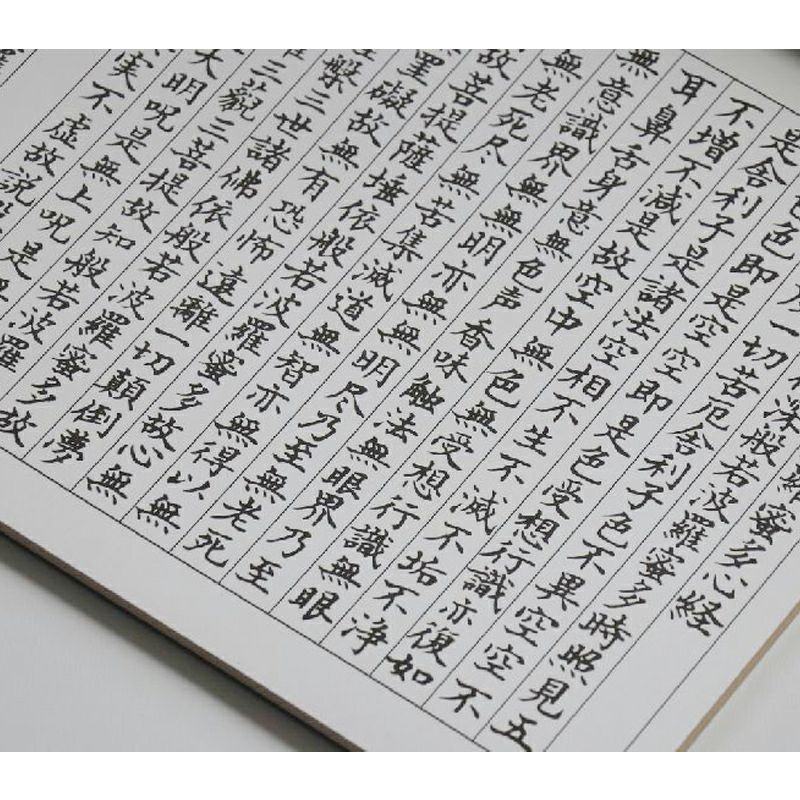 蜜多心経
深般若波羅蜜多時照見五
一切苦厄舎利子色不異空空不
色即是空空即是色受想行識亦復如
是舎利子是諸法空相不生不滅不垢不浄
不増不減是故空中無色無受想行識無眼
耳鼻舌身意無色声香味触法無眼界乃至
無意識界無無明亦無無明尽乃至無老死
無老死尽無苦集滅道無智亦無得以無
故菩提薩埵依般若波羅蜜多故心無
罣礙故無有恐怖遠離一切顛倒夢
槃三世諸佛依般若波羅蜜多故
三藐三菩提故知般若波羅
大明呪是無上呪是無
実不虚故説